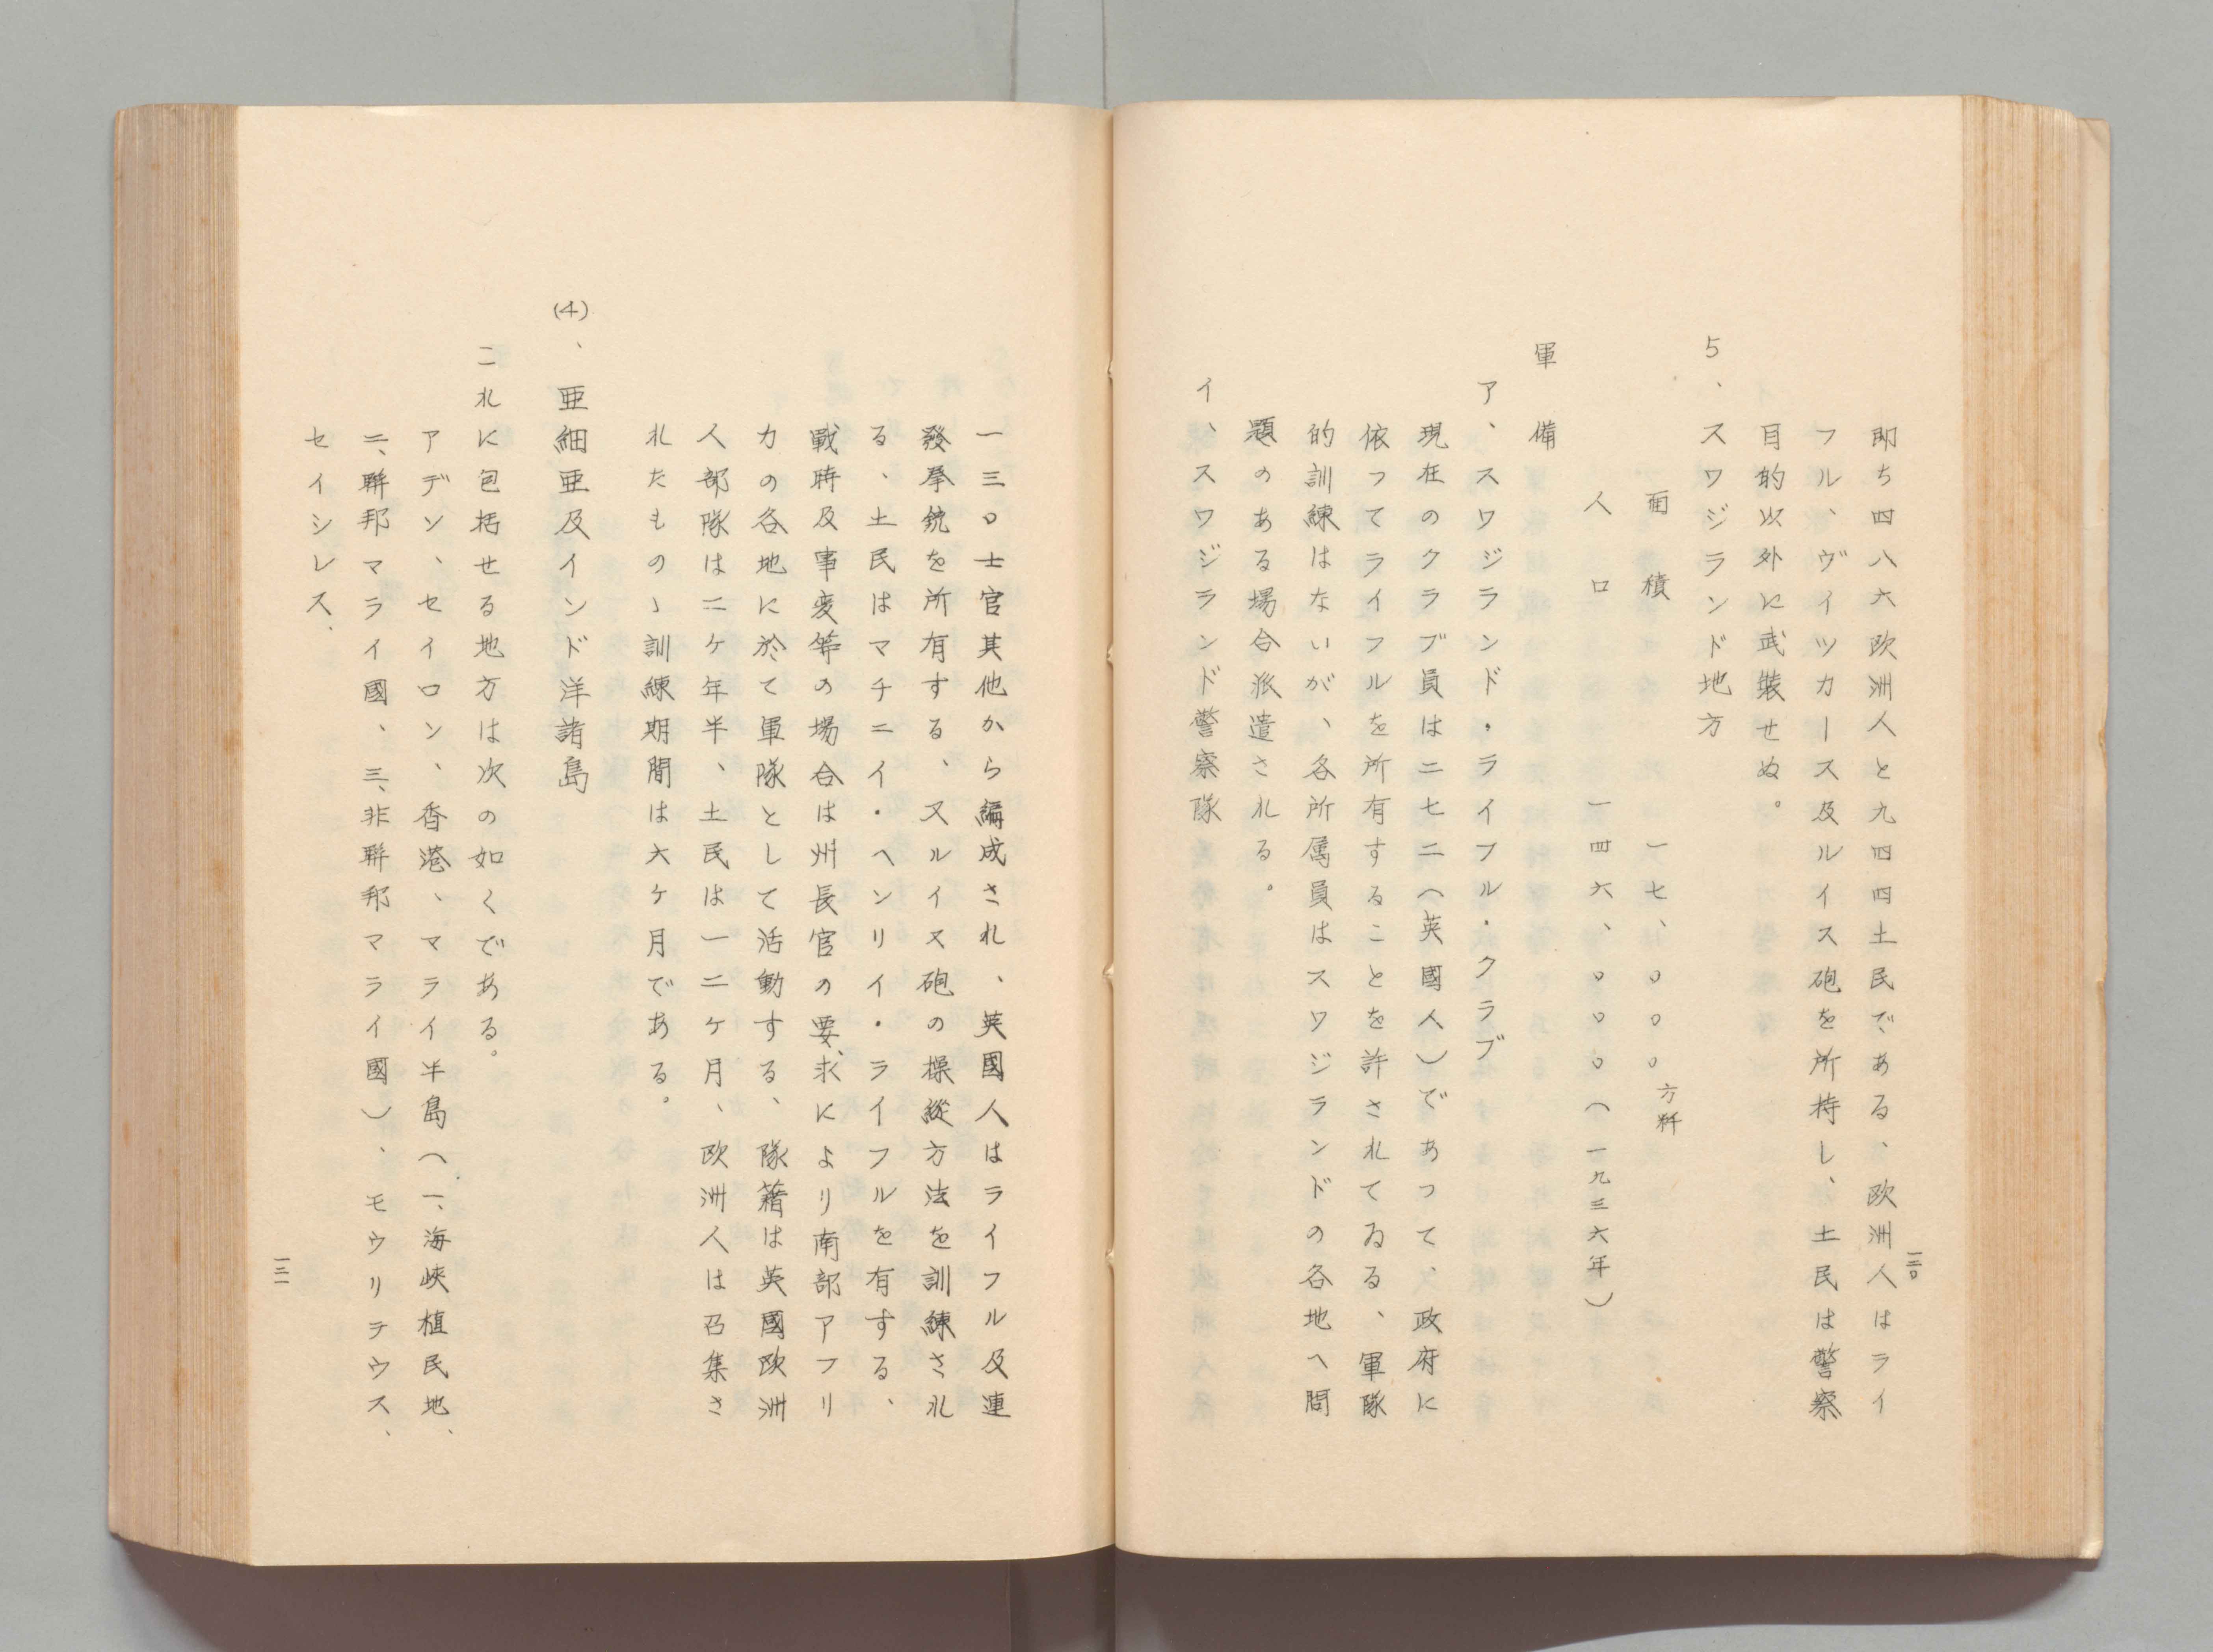 即ち四八六欧洲人と九四四土民である、欧洲人はライ
フル、ヴイツカース及ルイス砲を所持し、土民は警察
目的以外に武装せぬ。
5、スワジランド地方
面積 一七、〇〇〇方粁
人口 一四六、〇〇〇(一九三六年)
軍備
ア、スワジランド・ライフル・クラブ
現在のクラブ員は二七二(英國人)であつて、政府に
依つてライフルを所有することを許されてゐる、軍隊
的訓練はないが、各所属員はスワジランドの各地へ問
題のある場合派遣される。
イ、スワジランド警察隊
一三〇
一三〇士官其他から編成され、英國人はライフル及連
發拳銃を所有する、又ルイス砲の操縦方法を訓練され
る、土民はマチニイ・ヘンリイ・ライフルを有する、
戰時及事変等の場合は州長官の要求により南部アフリ
カの各地に於て軍隊として活動する、隊籍は英國欧洲
人部隊は二ケ年半、土民は一二ケ月、欧洲人は召集さ
れたものゝ訓練期間は六ケ月である。
(4)、亜細亜及インド洋諸島
これに包括せる地方は次の如くである。
アデン、セイロン、香港、マライ半島(一、海峡植民地、
二、聯邦マライ國、三、非聯邦マライ國)、モウリテウス、
セイシレス.
一三一